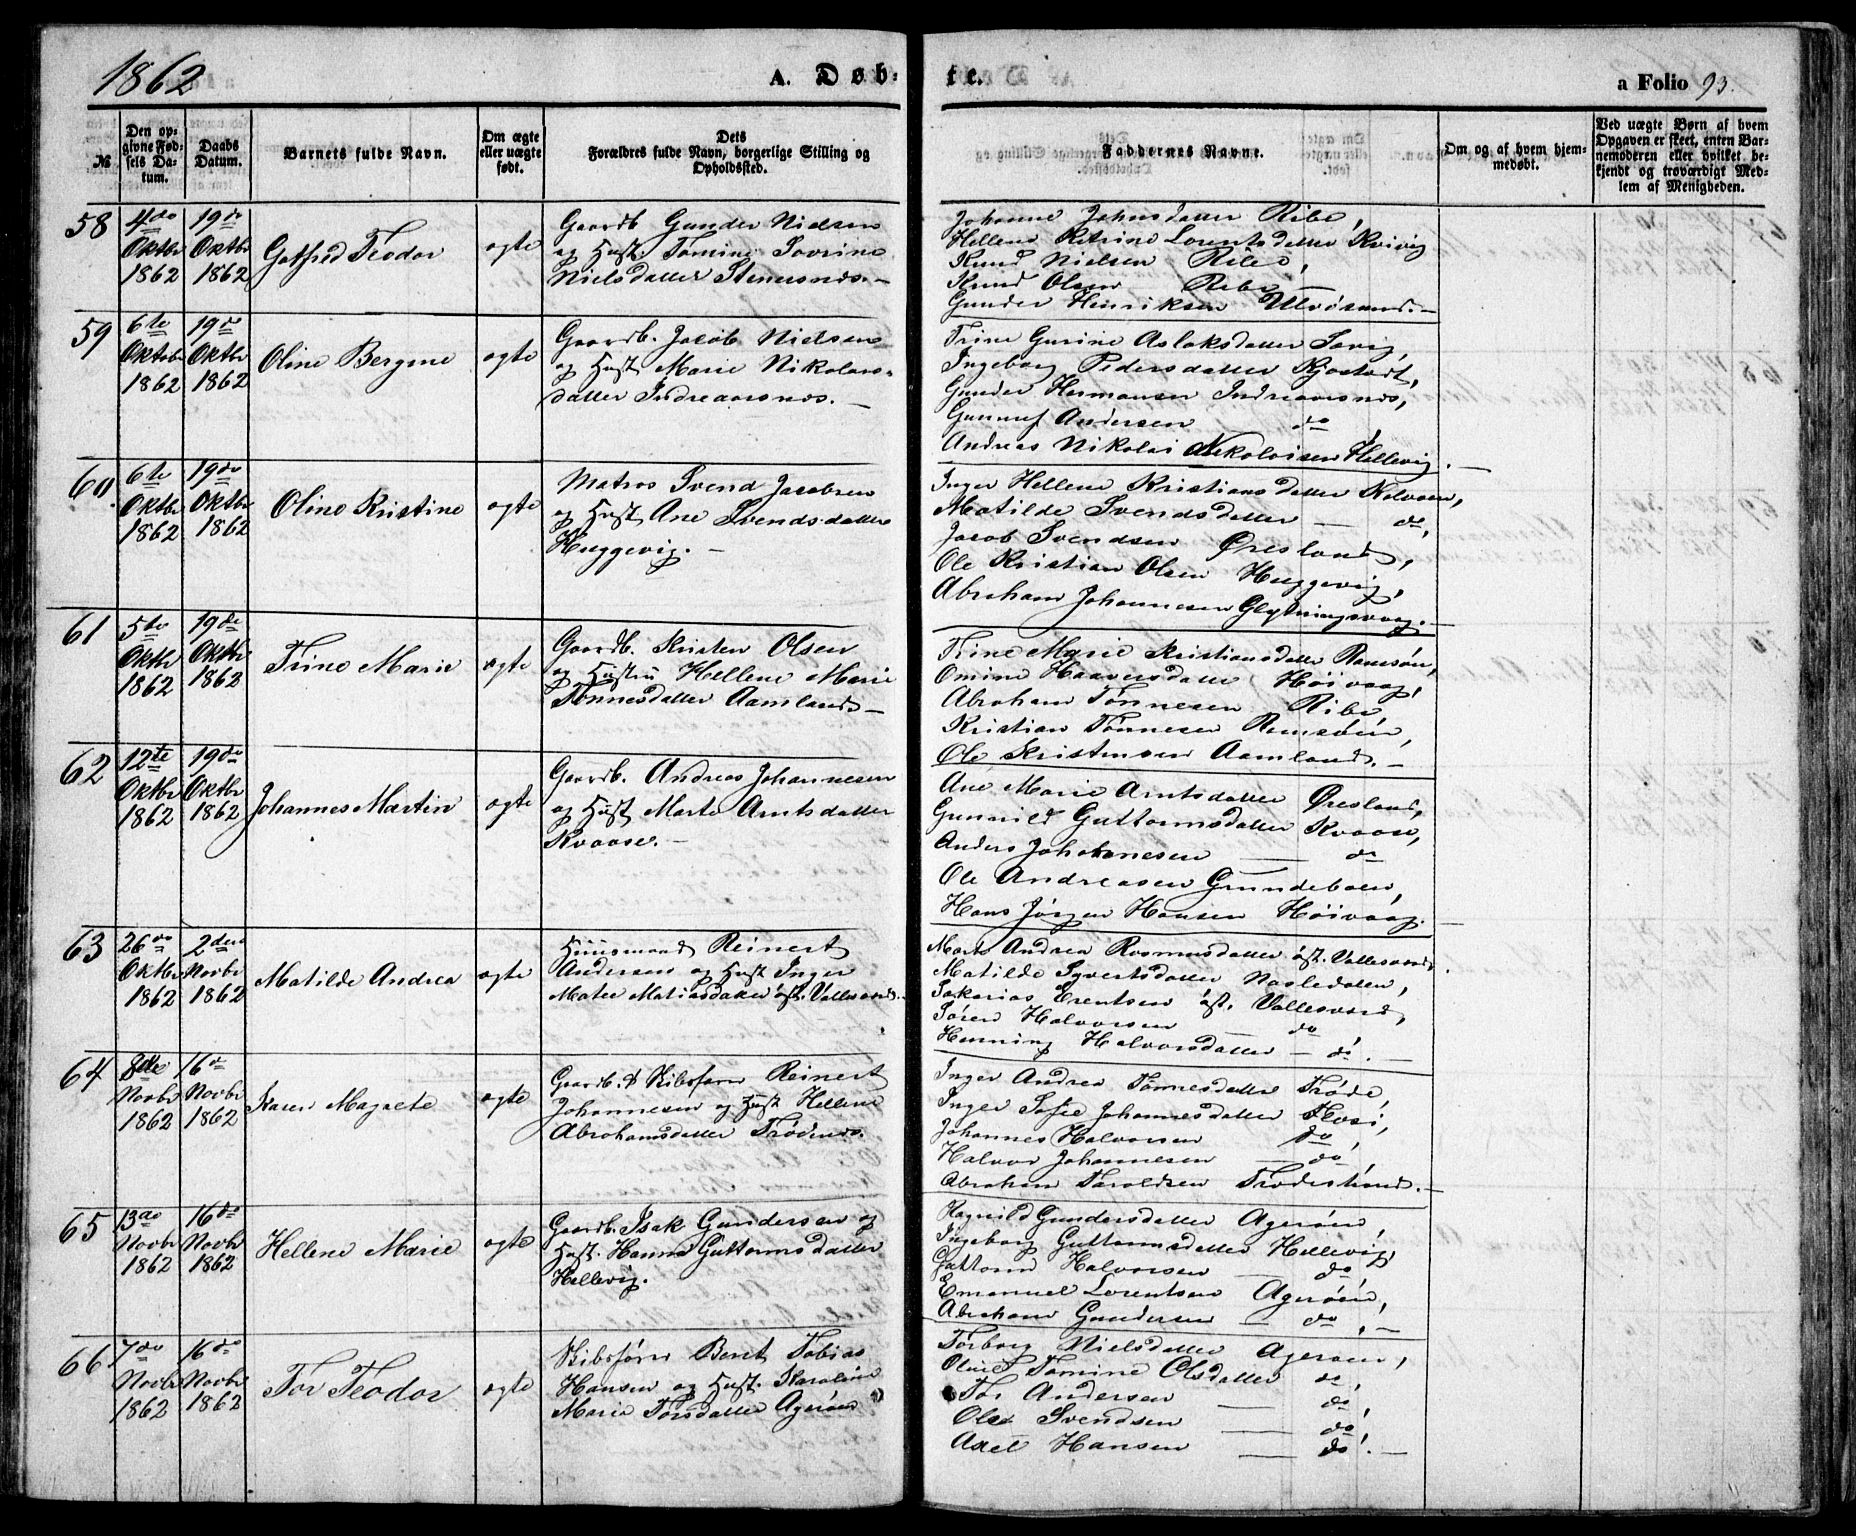 1862
A. Døb-
te.
a Folio 93.
№
Den op-
givne Fød-
sels Da-
tum.
Daabs
Datum.
Barnets fulde Navn.
Om ægte
eller uægte
født.
Dets
Forældres fulde Navn, borgerlige Stilling og
Opholdssted.
Faddernes Navne.
Om og af hvem hjem-
medøbt.
Ved uægte Børn af hvem
Opgaven er skeet, enten Bar-
nemoderen eller hvilket be-
kjendt og troværdigt Med-
lem af Menigheden.
58
4de
Oktbr
1862
19de
Oktbr
1862
Gotfred Teodor
ægte
Gaardb. Gunder Nielsen
og Hust. Tomine Sovrine
Nielsdatter Stenesnes. -
Johanne Jahnsdatter Ribe,
Hellene Petrine Lorentsdatter Kvivig
Knud Nielsen Ribe,
Knud Olsen Ribe -
Gunder Henriksen Ulvøsund. -
59
6te
Oktbr
1862
19de
Oktbr
1862
Oline Bergine
ægte
Gaardb. Jacob Nielsen
og Hust Marie Nikolais-
datter Indreaaresnes. -
Trine Gurine Aslaksdatter
Ingeborg Pedersdatter Kjøstvedt,
Gunder Hermansen Indreaaresnes,
Gunnuf Andersen do
Andreas Nikolai Nikolaisen Hellevig. -
60
6te
Oktbr
1862
19de
Oktbr
1862
Oline Kristine
ægte
Matros Svend Jacobsen
og Hust Ane Svendsdatter
Huggevig. -
Inger Hellene Kristiansdatter Kalvøen,
Matilde Svendsdatter - do,
Jacob Svendsen Øresland,
Ole Kristian Olsen Huggevig,
Abraham Johannesen Glytningsvaag. -
61
5te
Oktbr
1862
19de
Oktbr
1862
Trine Marie
ægte
Gaardb. Kristen Olsen
og Hustru Hellene Marie
Tønnesdatter Aamland. -
Trine Marie Kristiansdatter Ramsøen,
Omine Haaversdatter Høivaag,
Abraham Tønnesen Ribe
Kristian Tønnesen Ramsøen,
Ole Kristensen Aamland. -
62
12te
Oktbr
1862
19de
Oktbr
1862
Johannes Martin
ægte
Gaardb. Andreas Johannesen
og Hust Marte Arntsdatter
Kvaase. -
Ane Marie Arntsdatter Øresland,
Gunvild Guttormsdatter Kvaase,
Anders Johannesen - do
Ole Andreasen Grundeboen,
Hans Jørgen Hansen Høivaag. -
63
26de
Oktbr
1862
2den
Novbr
1862
Matilde Andrea
ægte
Huusmand Reinert
Andersen og Hust Inger
Matea Matiasdatter øst. Vallesværd. -
Marte Andrea Rasmusdatter øst. Vallesværd.
Matilde Syvertsdatter Nasledalen,
Sakarias Erentsen øst. Vallesværd,
Søren Halvorsen - do,
Henning Halvorsdatter - do. -
64
8de
Novbr
1862
16de
Novbr
1862
Karen Magrete
ægte
Gaardb. & Skibsfører Reinert
Johannesen og Hust Hellene
Abrahamsdatter Trødenes.
Inger Andrea Tønnesdatter Trøde,
Inger Sofie Johannesdatter
Johannes Halvorsen do,
Halvor Johannesen - do,
Abraham Taroldsen Trødestrand. -
65
13de
Novbr
1862
16de
Novbr
1862
Hellene Marie
ægte
Gaardb. Isak Gundersen og
Hust. Hanna Guttormsdatter
Hellevig.
Ragnild Gundersdatter Agerøen
Ingeborg Guttormsdatter Hellevig,
Guttorm Halvorsen - do
Emanuel Lorentsen Agerøen,
Abraham Gundersen - do, -
66
7de
Novbr
1862
16de
Novbr
1862
Tor Teodor
ægte
Skibsfører Beret Tobias
Hansen og Hust. Karoline
Marie Torsdatter Agerøen
Torborg Nielsdatter Agerøen,
Oline Tomine Olsdatter do,
Tor Andersen - do,
Ole Svendsen - do,
Axel Hansen - do. -